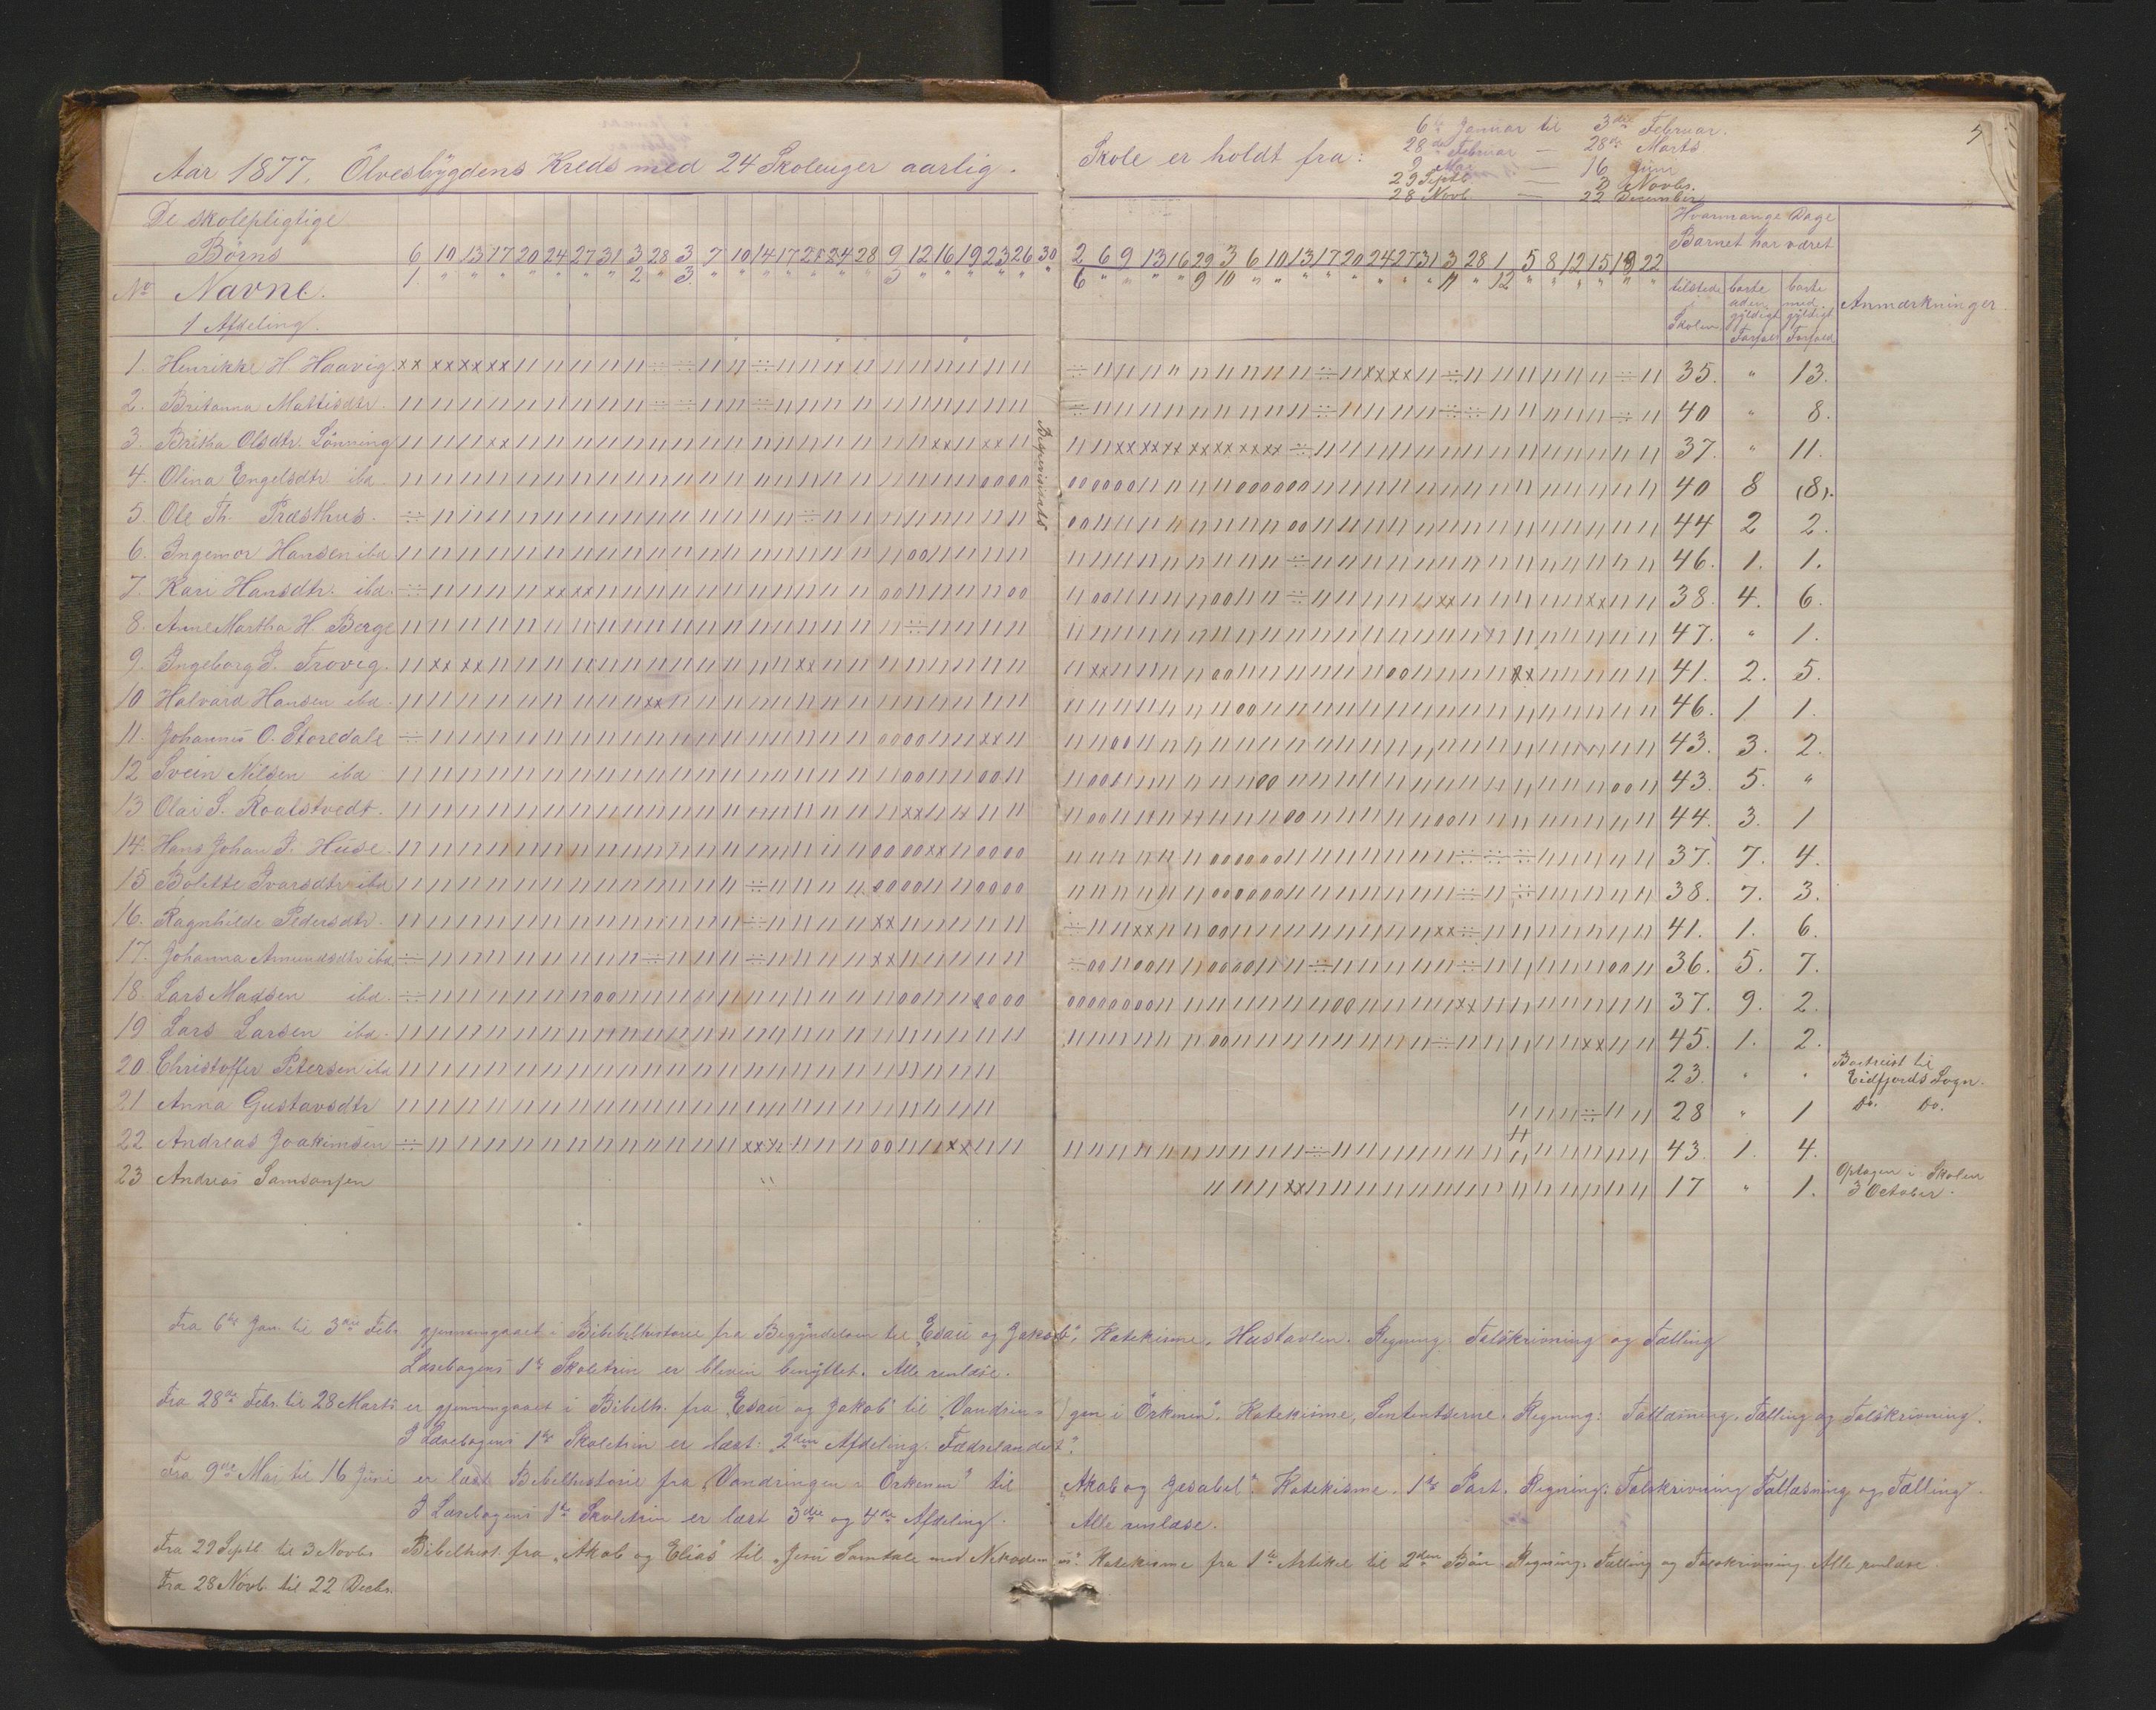 Aar 1877. Ölvesbygdens Kreds med 24 Skoleuger aarlig.
Skole er holdt fra:
6te Januar til 3die Februar.
28de Februar — 28de Marts
9 Mai — 16 Juni
29 Septb. — 3 Novbr.
28 Novb. — 22 December
De skolepligtige
Börns
No Navne.
1 Afdeling.
6 10 13 17 20 24 27 31 3 28 3 7 10 14 17 21 24 28 9 12 16 19 23 26 30
1 " " " " " " " 2 " 3 " " " " " " " 5 " " " " " "
2 6 9 13 16 29 3 6 10 13 17 20 24 27 31 3 28 1 5 8 12 15 19 22
6 " " " " 9 10 " " " " " " " " 11 " 12 " " " " " "
Hvormange Dage
Barnet har været
tilstede Skolen
borte uden gyldigt Forfald
borte med gyldigt Forfald
Anmærkninger.
1. Henrikke H. Haavig. 35. " 13.
2. Britanna Mattisdtr. 40 " 8.
3. Britha Olsdtr. Lönning 37. " 11.
4. Olina Engelsdtr ibd 40 8 (8).
5. Ole Th. Præsthus. 44 2 2.
6. Ingemor Hansen ibd. 46. 1. 1.
7. Kari Hansdtr. ibd. 38. 4. 6.
8. Anne Martha H. Berge 47. " 1.
9. Ingeborg P. Trovig. 41. 2. 5.
10 Halvard Hansen ibd. 46. 1 1.
11. Johannes O. Storedale 43. 3. 2.
12 Svein Nilsen ibd 43. 5. "
13 Olai S. Roaldstvedt. 44. 3. 1
14. Hans Johan I. Huse. 37. 7. 4.
15 Bolette Ivarsdtr ibd 38. 7. 3.
16. Ragnhilde Pedersdtr. 41. 1. 6.
17. Johanna Amundsdtr ibd. 36. 5. 7.
18. Lars Madsen ibd. 37. 9. 2.
19 Lars Larsen ibd. 45. 1. 2.
20 Christoffer Petersen ibd 23. " " Bortreist til Eidfjords Sogn.
21 Anna Gustavsdtr 28 " 1 Do. Do.
22 Andreas Joakimsen 43. 1. 4.
23 Andreas Samsonsen 17 " 1. Optagen i Skolen 3 October.
Fra 6te Jan. til 3die Feb. gjennemgaaet i Bibelhistorie fra Begyndelsen til "Esau og Jakob", Katekisme, Hustavlen. Regning. Talskrivning og Tælling
Læsebogens 1te Skoletrin er bleven benyttet. Alle renlæse.
Fra 28de Feb. til 28 Marts er gjennemgaaet i Bibelh. fra "Esau og Jakob" til "Vandringen i Örkenen". Katekisme, Sententserne. Regning: Tallæsning, Tælling og Talskrivning.
I Læsebogens 1te Skoletrin er læst: 2den Afdeling. Fædrelandet".
Fra 9de Mai til 16 Juni er læst Bibelhistorie fra "Vandringen i Örkenen" til "Akab og Jesabel". Katekisme. 1te Part. Regning: Talskrivning Tallæsning og Tælling.
I Læsebogens 1te Skoletrin er læst 3die og 4de Afdeling. Alle renlæse.
Fra 29 Septb. til 3 Novbr. Bibelhist. fra "Akab og Elias" til "Jesu Samtale med Nikodemus". Katekisme fra 1te Artikel til 2den Bön Regning. Tælling og Talskrivning Alle renlæse.
Fra 28 Novb. til 22 Decbr.